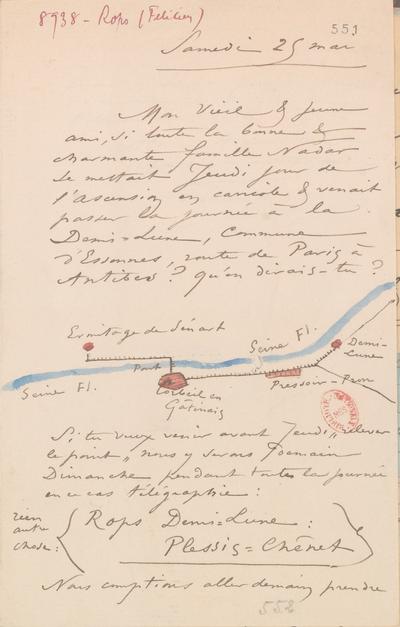 8938 - Rops (Félicien)
551
Samedi 25 mai
Mon Vieil & jeune
ami, si toute la bonne &
charmante famille Nadar
se mettait Jeudi jour de
l'Ascension en carriole & venait
passer la journée à la
Demi-Lune, Commune
d'Essonnes, route de Paris à
Antibes? qu'en dirais-tu?
Ermitage de Sénart
Seine Fl.
Demi-
Lune
Pont
Seine Fl.
Corbeil en
Gâtinais
Pressoir-Prom
Si tu veux venir avant Jeudi, "relever
le point", nous y serons Demain
Dimanche pendant toute la journée
en ce cas télégraphie:
rien
autre
chose:
Rops Demi=Lune:
Plessis=Chênet
Nous comptions aller demain prendre
552